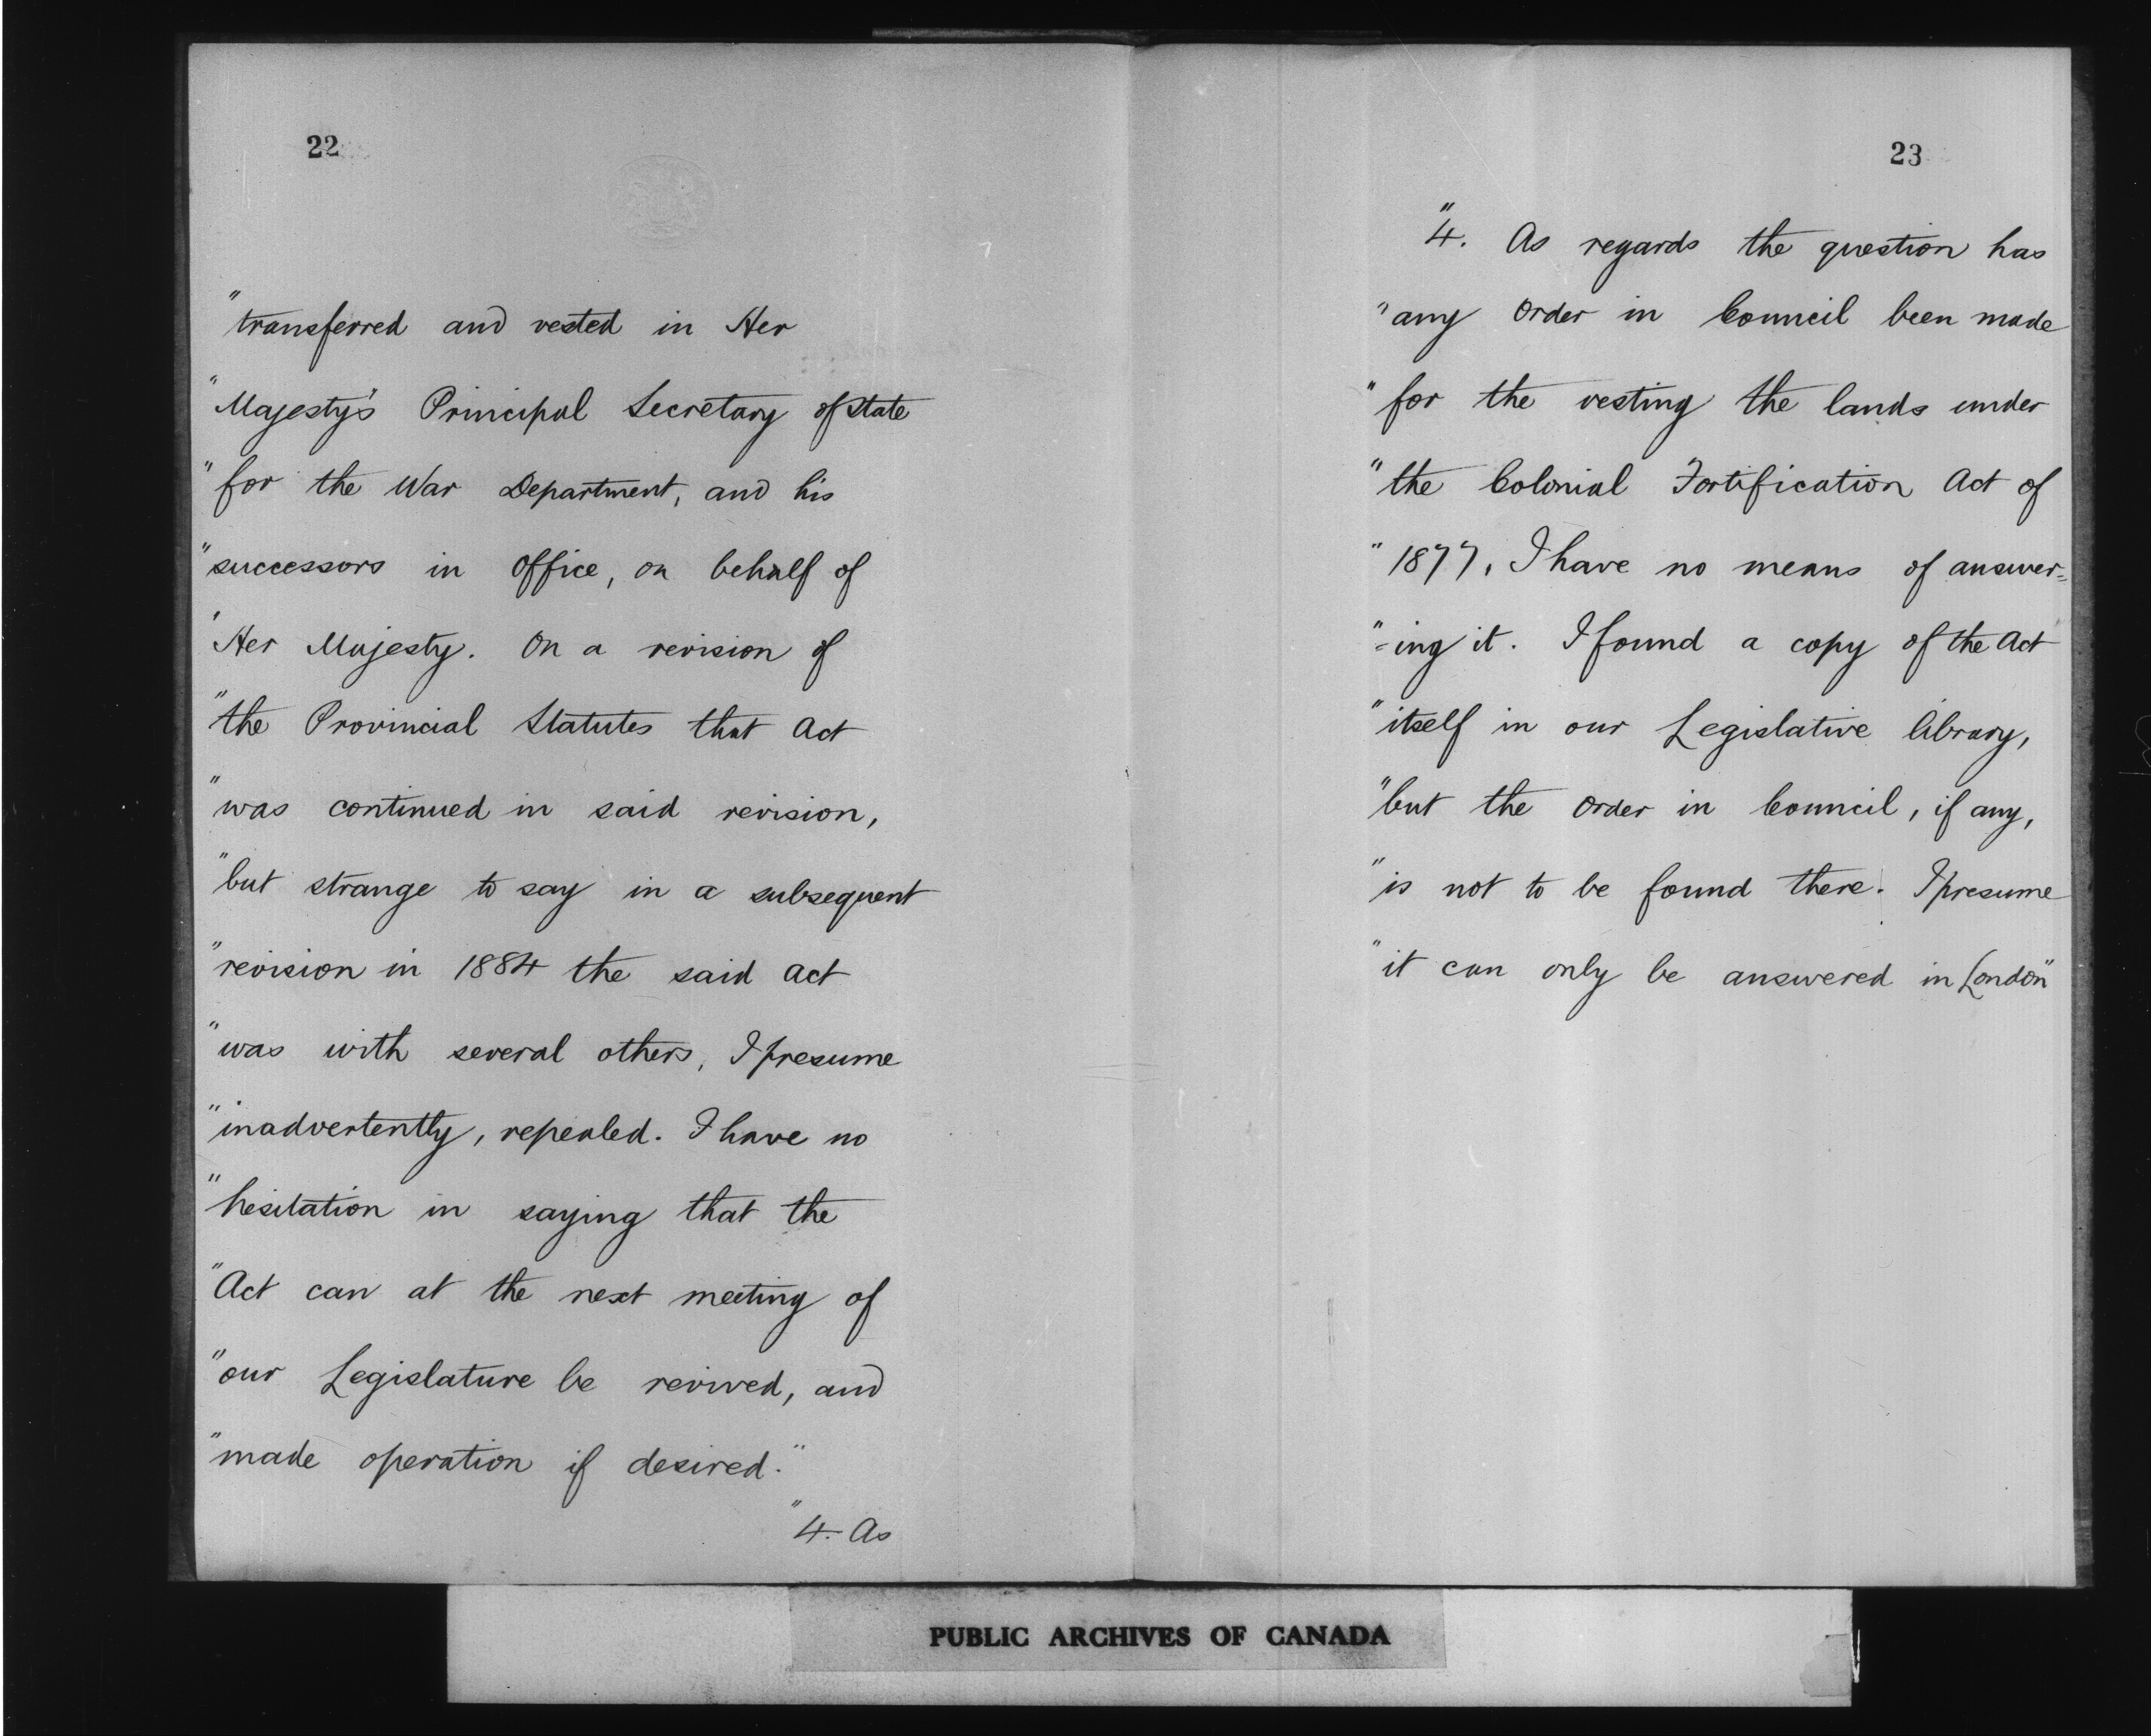 22
"transferred and vested in Her
"Majesty's Principal Secretary of State
"for the War Department, and his
"successors in Office, on behalf of
"Her Majesty. On a revision of
"the Provincial Statutes that Act
"was continued in said revision,
"but strange to say in a subsequent
"revision in 1884 the said Act
"was with several others, I presume
"inadvertently, repealed. I have no
"hesitation in saying that the
"Act can at the next meeting of
"our Legislature be revived, and
"made operation if desired."
"4. As
23
"4. As regards the question has
"any Order in Council been made
"for the vesting the lands under
"the Colonial Fortification Act of
"1877, I have no means of answer=
"=ing it. I found a copy of the Act
"itself in our Legislative library,
"but the Order in Council, if any,
"is not to be found there. I presume
"it can only be answered in London"
PUBLIC ARCHIVES OF CANADA